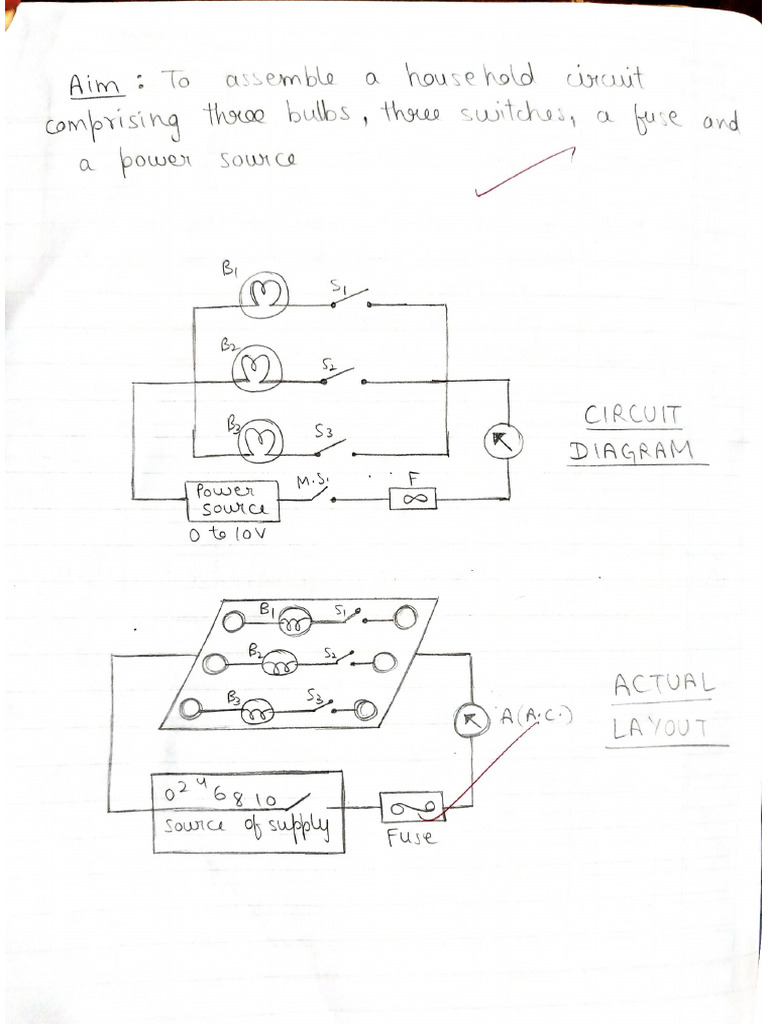 Aim : To assemble a household circuit
comprising three bulbs, three switches, a fuse and
a power source
B1
S1
B2
S2
B3
S3
CIRCUIT
DIAGRAM
M.S.
F
Power
source
0 to 10V
B1
S1
B2
S2
B3
S3
ACTUAL
LAYOUT
A (A.C.)
0 2 4 6 8 10
source of supply
Fuse